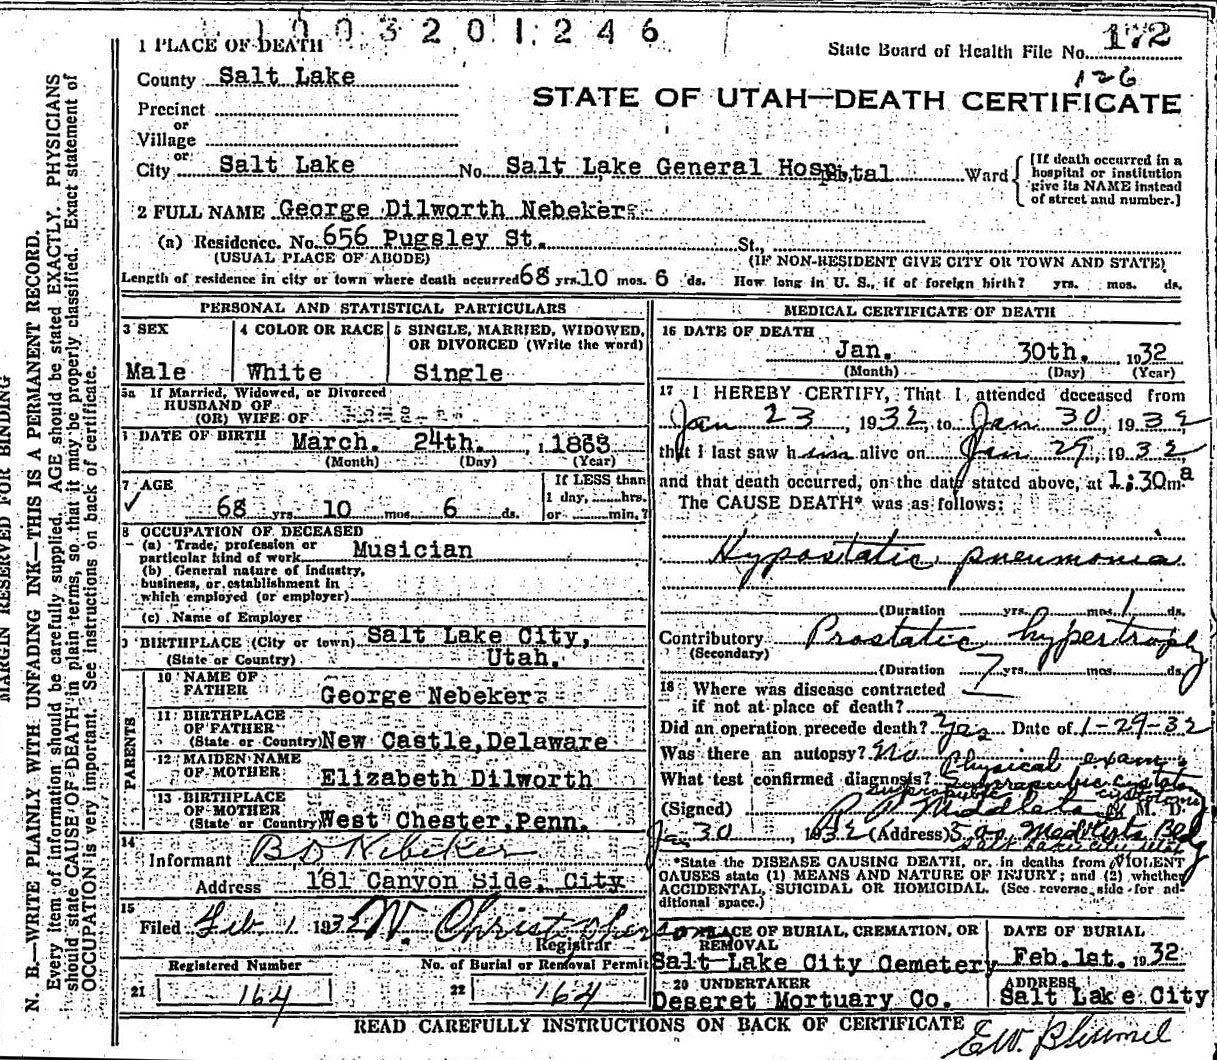 1003201246
1 PLACE OF DEATH
State Board of Health File No. 172
126
County Salt Lake
STATE OF UTAH—DEATH CERTIFICATE
Precinct
or
Village
or
City Salt Lake No. Salt Lake General Hospital Ward
[If death occurred in a
hospital or institution
give its NAME instead
of street and number.]
2 FULL NAME George Dilworth Nebeker
(a) Residence. No. 656 Pugsley St. St.,
(USUAL PLACE OF ABODE) (IF NON-RESIDENT GIVE CITY OR TOWN AND STATE)
Length of residence in city or town where death occurred 68 yrs. 10 mos. 6 ds. How long in U. S., if of foreign birth? yrs. mos. ds.
PERSONAL AND STATISTICAL PARTICULARS
3 SEX
Male
4 COLOR OR RACE
White
5 SINGLE, MARRIED, WIDOWED,
OR DIVORCED (Write the word)
Single
5a If Married, Widowed, or Divorced
HUSBAND OF
(OR) WIFE OF
DATE OF BIRTH March. 24th. , 1863
(Month) (Day) (Year)
7 AGE
68 yrs 10 mos 6 ds.
If LESS than
1 day, hrs.
or min.?
8 OCCUPATION OF DECEASED
(a) Trade, profession or
particular kind of work Musician
(b) General nature of industry,
business, or establishment in
which employed (or employer)
(c) Name of Employer
9 BIRTHPLACE (City or town) Salt Lake City,
(State or Country) Utah.
PARENTS
10 NAME OF
FATHER George Nebeker
11 BIRTHPLACE
OF FATHER
(State or Country) New Castle, Delaware
12 MAIDEN NAME
OF MOTHER Elizabeth Dilworth
13 BIRTHPLACE
OF MOTHER
(State or Country) West Chester, Penn.
14
Informant B D Nebeker
Address 181 Canyon Side, City
15
Filed Feb 1 1932 W. Christopherson
Registrar
Registered Number
21 164
No. of Burial or Removal Permit
22 164
MEDICAL CERTIFICATE OF DEATH
16 DATE OF DEATH
Jan. 30th. 1932
(Month) (Day) (Year)
17 I HEREBY CERTIFY, That I attended deceased from
Jan 23, 1932, to Jan 30, 1932
that I last saw him alive on Jan 29, 1932
and that death occurred, on the date stated above, at 1:30 m a
The CAUSE DEATH* was as follows:
Hypostatic pneumonia
(Duration yrs. mos. 1 ds.
Contributory Prostatic hypertrophy
(Secondary)
(Duration 7 yrs. mos. ds.
18 Where was disease contracted
if not at place of death?
Did an operation precede death? Yes Date of 1-29-32
Was there an autopsy? No Physical exam
What test confirmed diagnosis? Suprapubic
(Signed) M. D.
Jan 30, 1932 (Address)
*State the DISEASE CAUSING DEATH, or, in deaths from VIOLENT
CAUSES state (1) MEANS AND NATURE OF INJURY; and (2) whether
ACCIDENTAL, SUICIDAL OR HOMICIDAL. (See reverse side for ad-
ditional space.)
PLACE OF BURIAL, CREMATION, OR
REMOVAL
Salt Lake City Cemetery
DATE OF BURIAL
Feb. 1st. 1932
20 UNDERTAKER
Deseret Mortuary Co.
ADDRESS
Salt Lake City
READ CAREFULLY INSTRUCTIONS ON BACK OF CERTIFICATE
MARGIN RESERVED FOR BINDING
N. B.—WRITE PLAINLY WITH UNFADING INK—THIS IS A PERMANENT RECORD.
Every item of information should be carefully supplied. AGE should be stated EXACTLY. PHYSICIANS
should state CAUSE OF DEATH in plain terms, so that it may be properly classified. Exact statement of
OCCUPATION is very important. See instructions on back of certificate.